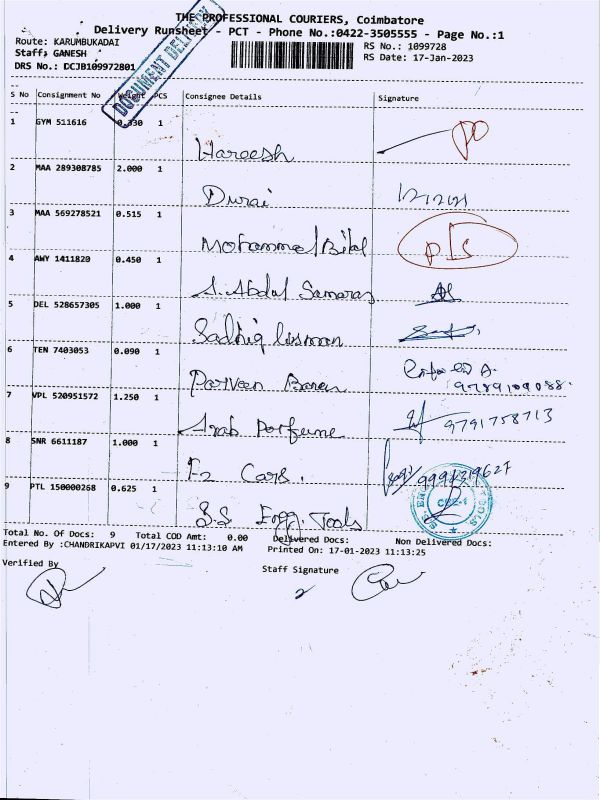 THE PROFESSIONAL COURIERS, Coimbatore
Delivery Runsheet - PCT - Phone No.:0422-3505555 - Page No.:1
Route: KARUMBUKADAI
RS No.: 1099728
Staff: GANESH
RS Date: 17-Jan-2023
DRS No.: DCJB109972801
DOCUMENT DELIVERY
S No Consignment No Weight PCS Consignee Details Signature
1 GYM 511616 0.330 1
Hareesh
2 MAA 289308785 2.000 1
Durai
3 MAA 569278521 0.515 1
Mohammed Bilal
4 AWY 1411820 0.450 1
A. Abdul
5 DEL 528657305 1.000 1
Sadhiq
6 TEN 7403053 0.090 1
Parveen
7 VPL 520951572 1.250 1
9791758713
Arab Perfume
8 SNR 6611187 1.000 1
F2 Cars.
9 PTL 150000268 0.625 1
S.S Engg. Tools
Total No. Of Docs: 9 Total COD Amt: 0.00 Delivered Docs: Non Delivered Docs:
Entered By :CHANDRIKAPVI 01/17/2023 11:13:10 AM Printed On: 17-01-2023 11:13:25
Verified By Staff Signature